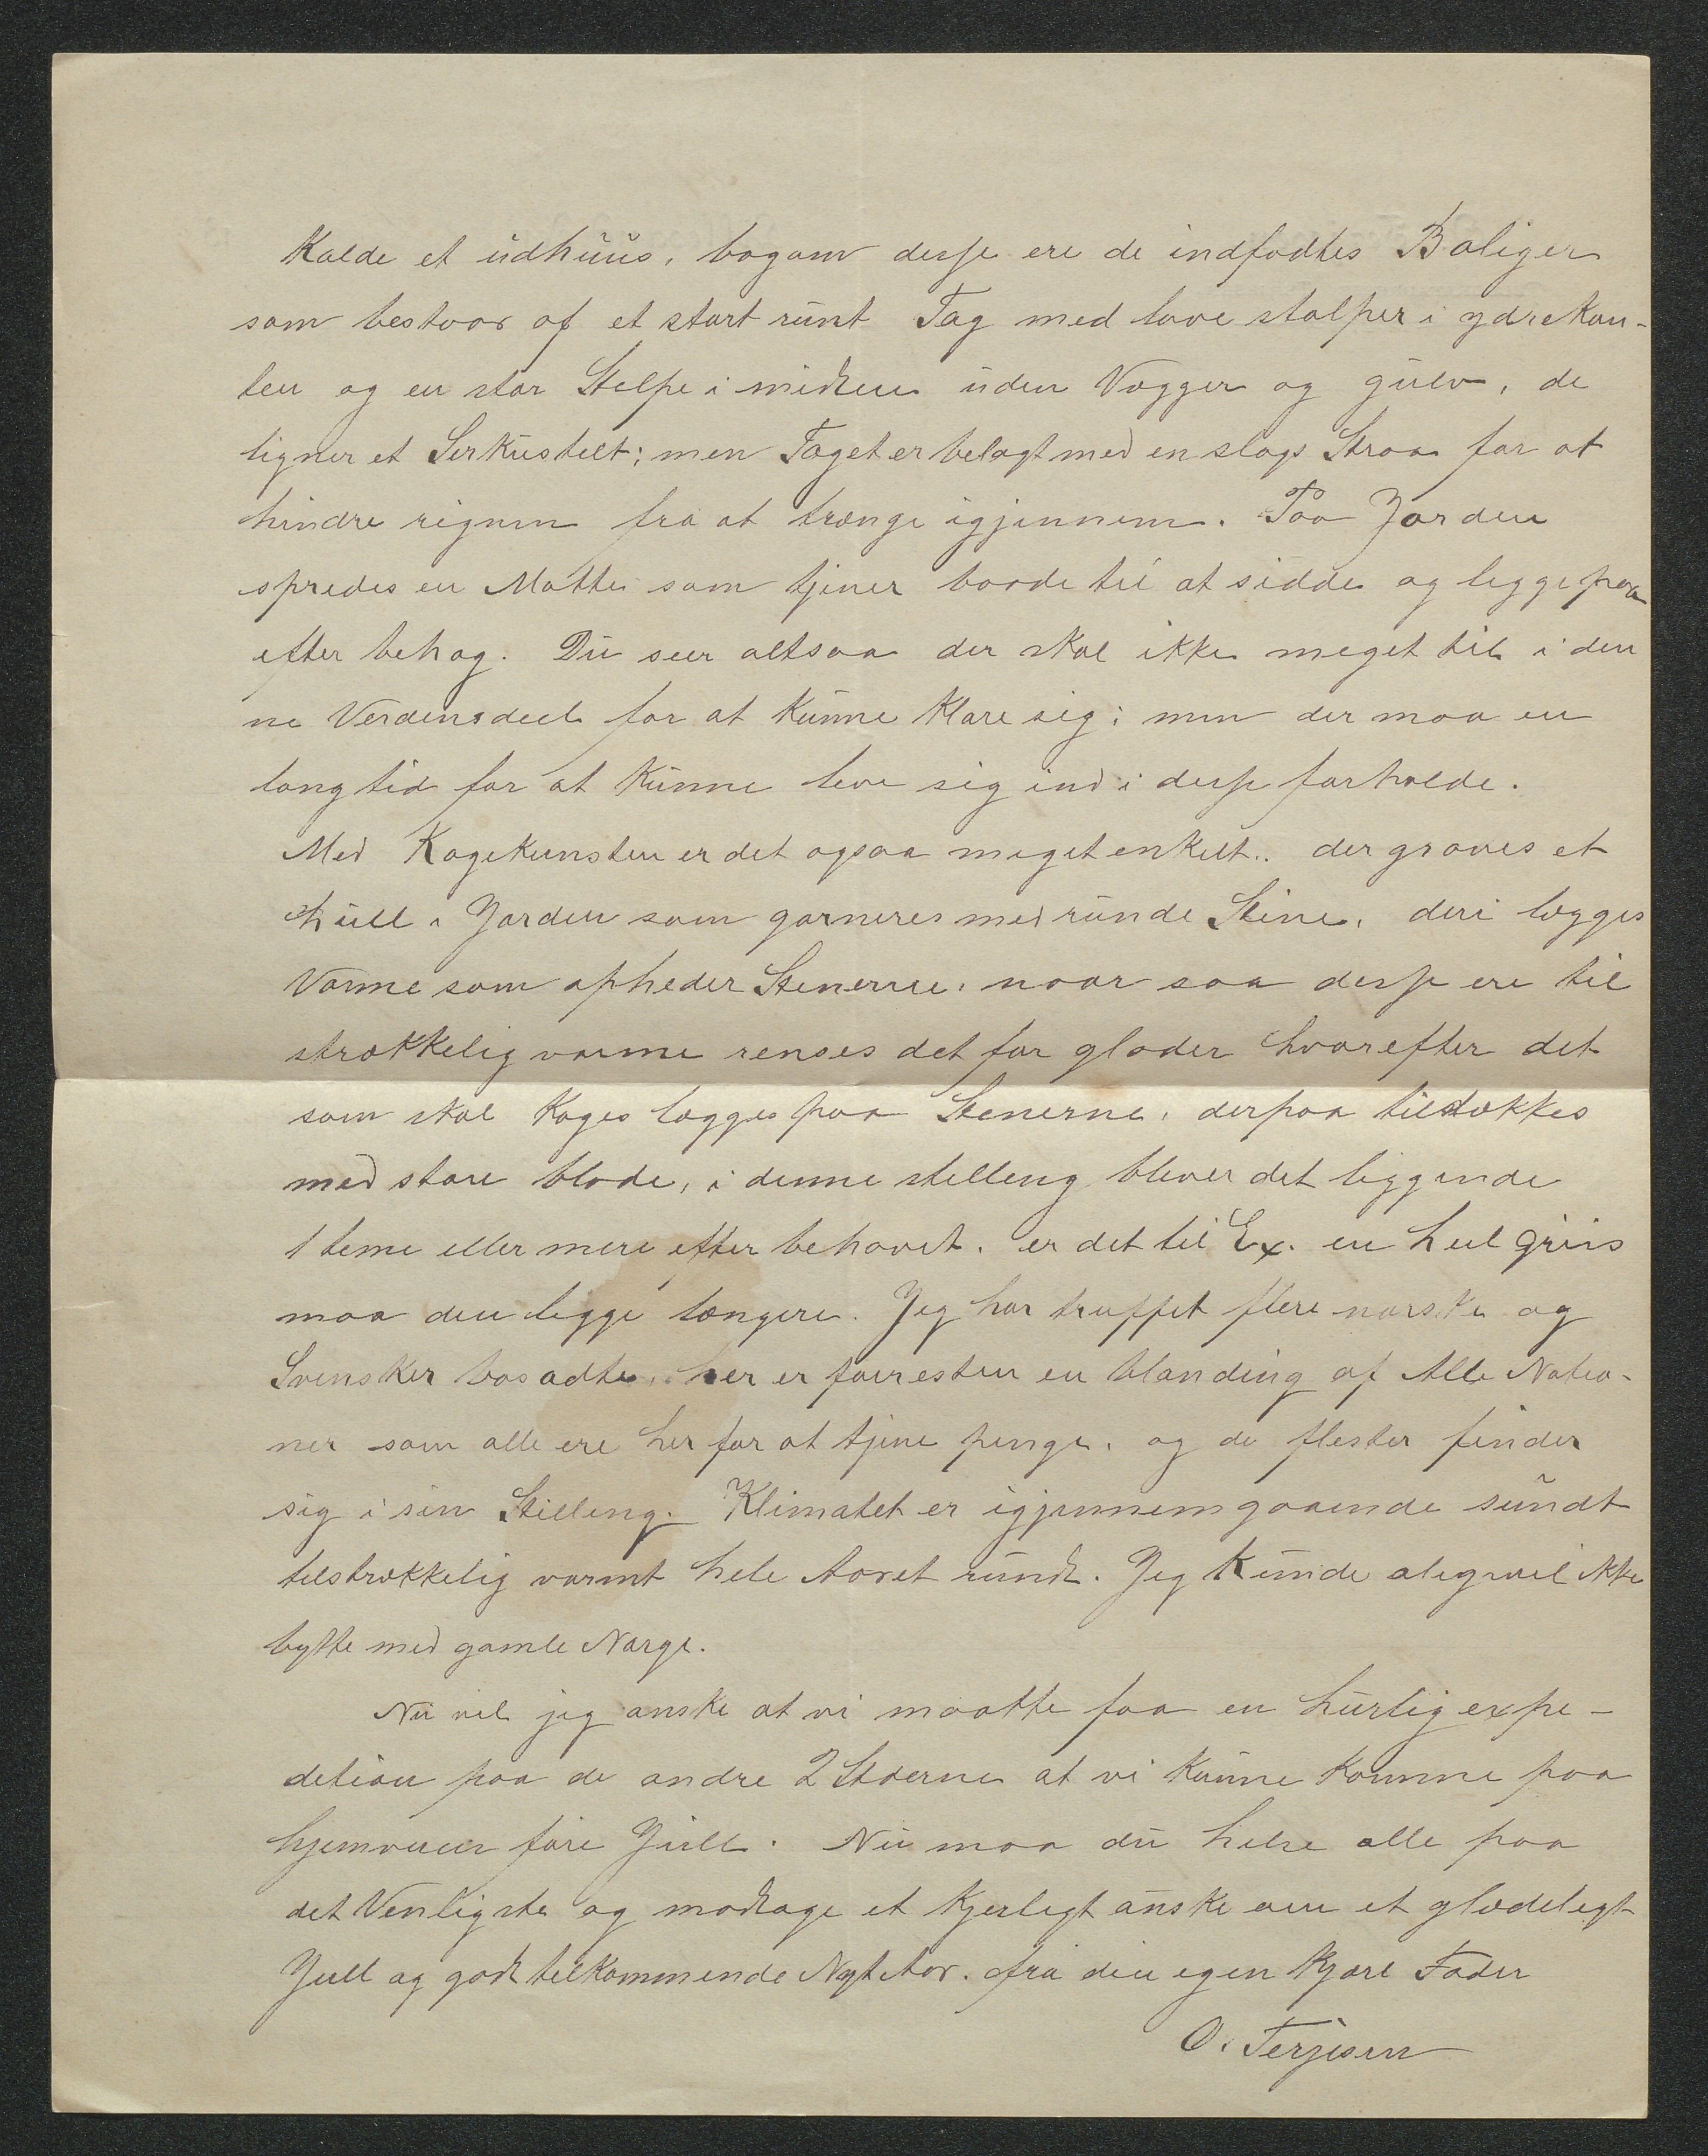 Kalde et udhuus, bagom desse ere de indfødtes Boliger
som bestaar af et stort rundt Tag med lave stolper i ydrekan-
ten og en stor Stolpe i midten uden Vægger og gulv, de
ligner et Serkustelt; men Taget er belagt med en slags Straa for at
hindre regnen fra at trænge igjennem. Paa Jorden
spredes en Matte som tjener baade til at sidde og legge paa
efter behag. Du seer altsaa der skal ikke meget til i den
ne Verdensdeel for at Kunne Klare sig; men der maa en
lang tid for at Kunne leve sig ind i desse forholde.
Med Kogekunsten er det ogsaa meget enkelt. der graves et
hull i Jorden som garneres med runde Stene, deri lægges
Varme som opheder Stenerne, naar saa desse ere til
strækkelig varme renses det for gløder hvorefter det
som skal Koges lægges paa Stenerne, derpaa tildækkes
med store blade, i denne stelling bliver det liggende
1 time eller mere efter behovet. er det til Ex. en heel griis
maa den legge længere. Jeg har truffet flere norske og
Svensker bosadte, her er forresten en blanding af Alle Natio-
ner som alle ere her for at tjene penge, og de flester finder
sig i sin Stilling. Klimatet er igjennemgaaende sundt
tilstrækkelig varmt hele Aaret rundt. Jeg Kunde aligevel ikke
bytte med gamle Norge.
Nu vil jeg ønske at vi maatte faa en hurtig expe-
detion paa de andre 2 Stæerne at vi Kunne Komme paa
hjemveien føre Jull. Nu maa du helse alle paa
det Venligste og modtage et Kjerligt ønske om et glædeligt
Jull og godt tilkommende Nyt Aar. fra din egen Kjære Fader
O. Terjesen